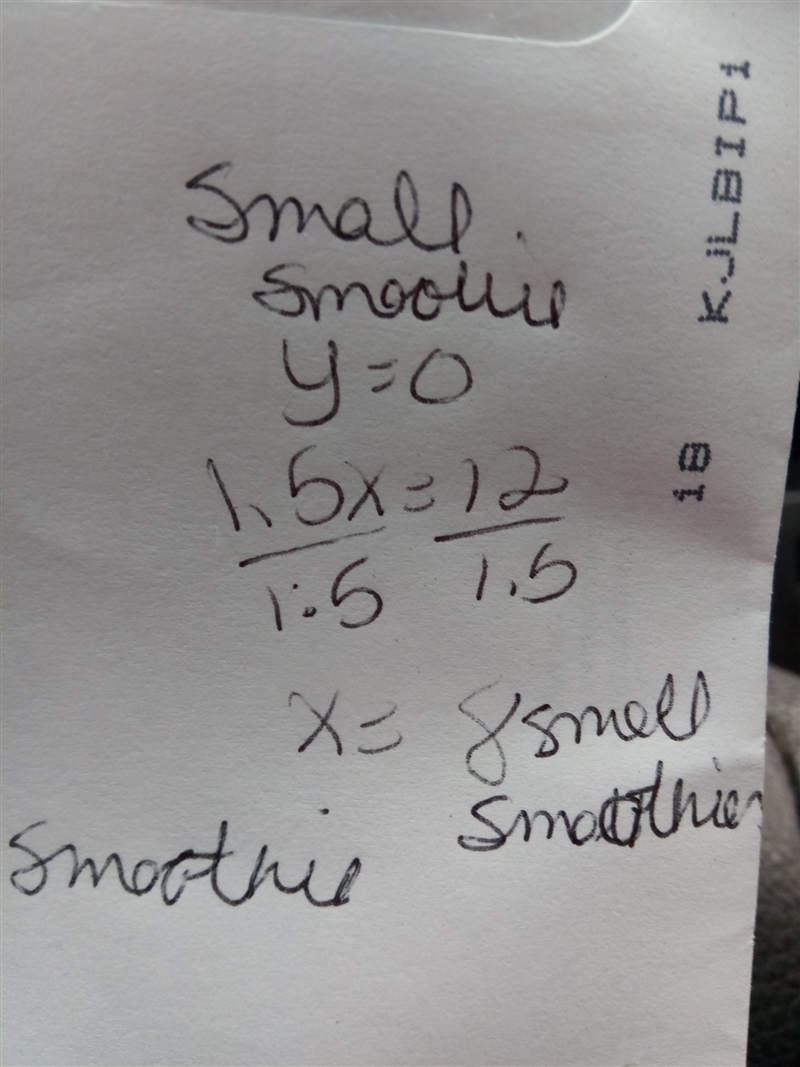 Small
Smoothie
y=0
1.5x=12
1.5 1.5
x= 8 small
Smoothies
Smoothie
KJLBIP1
18